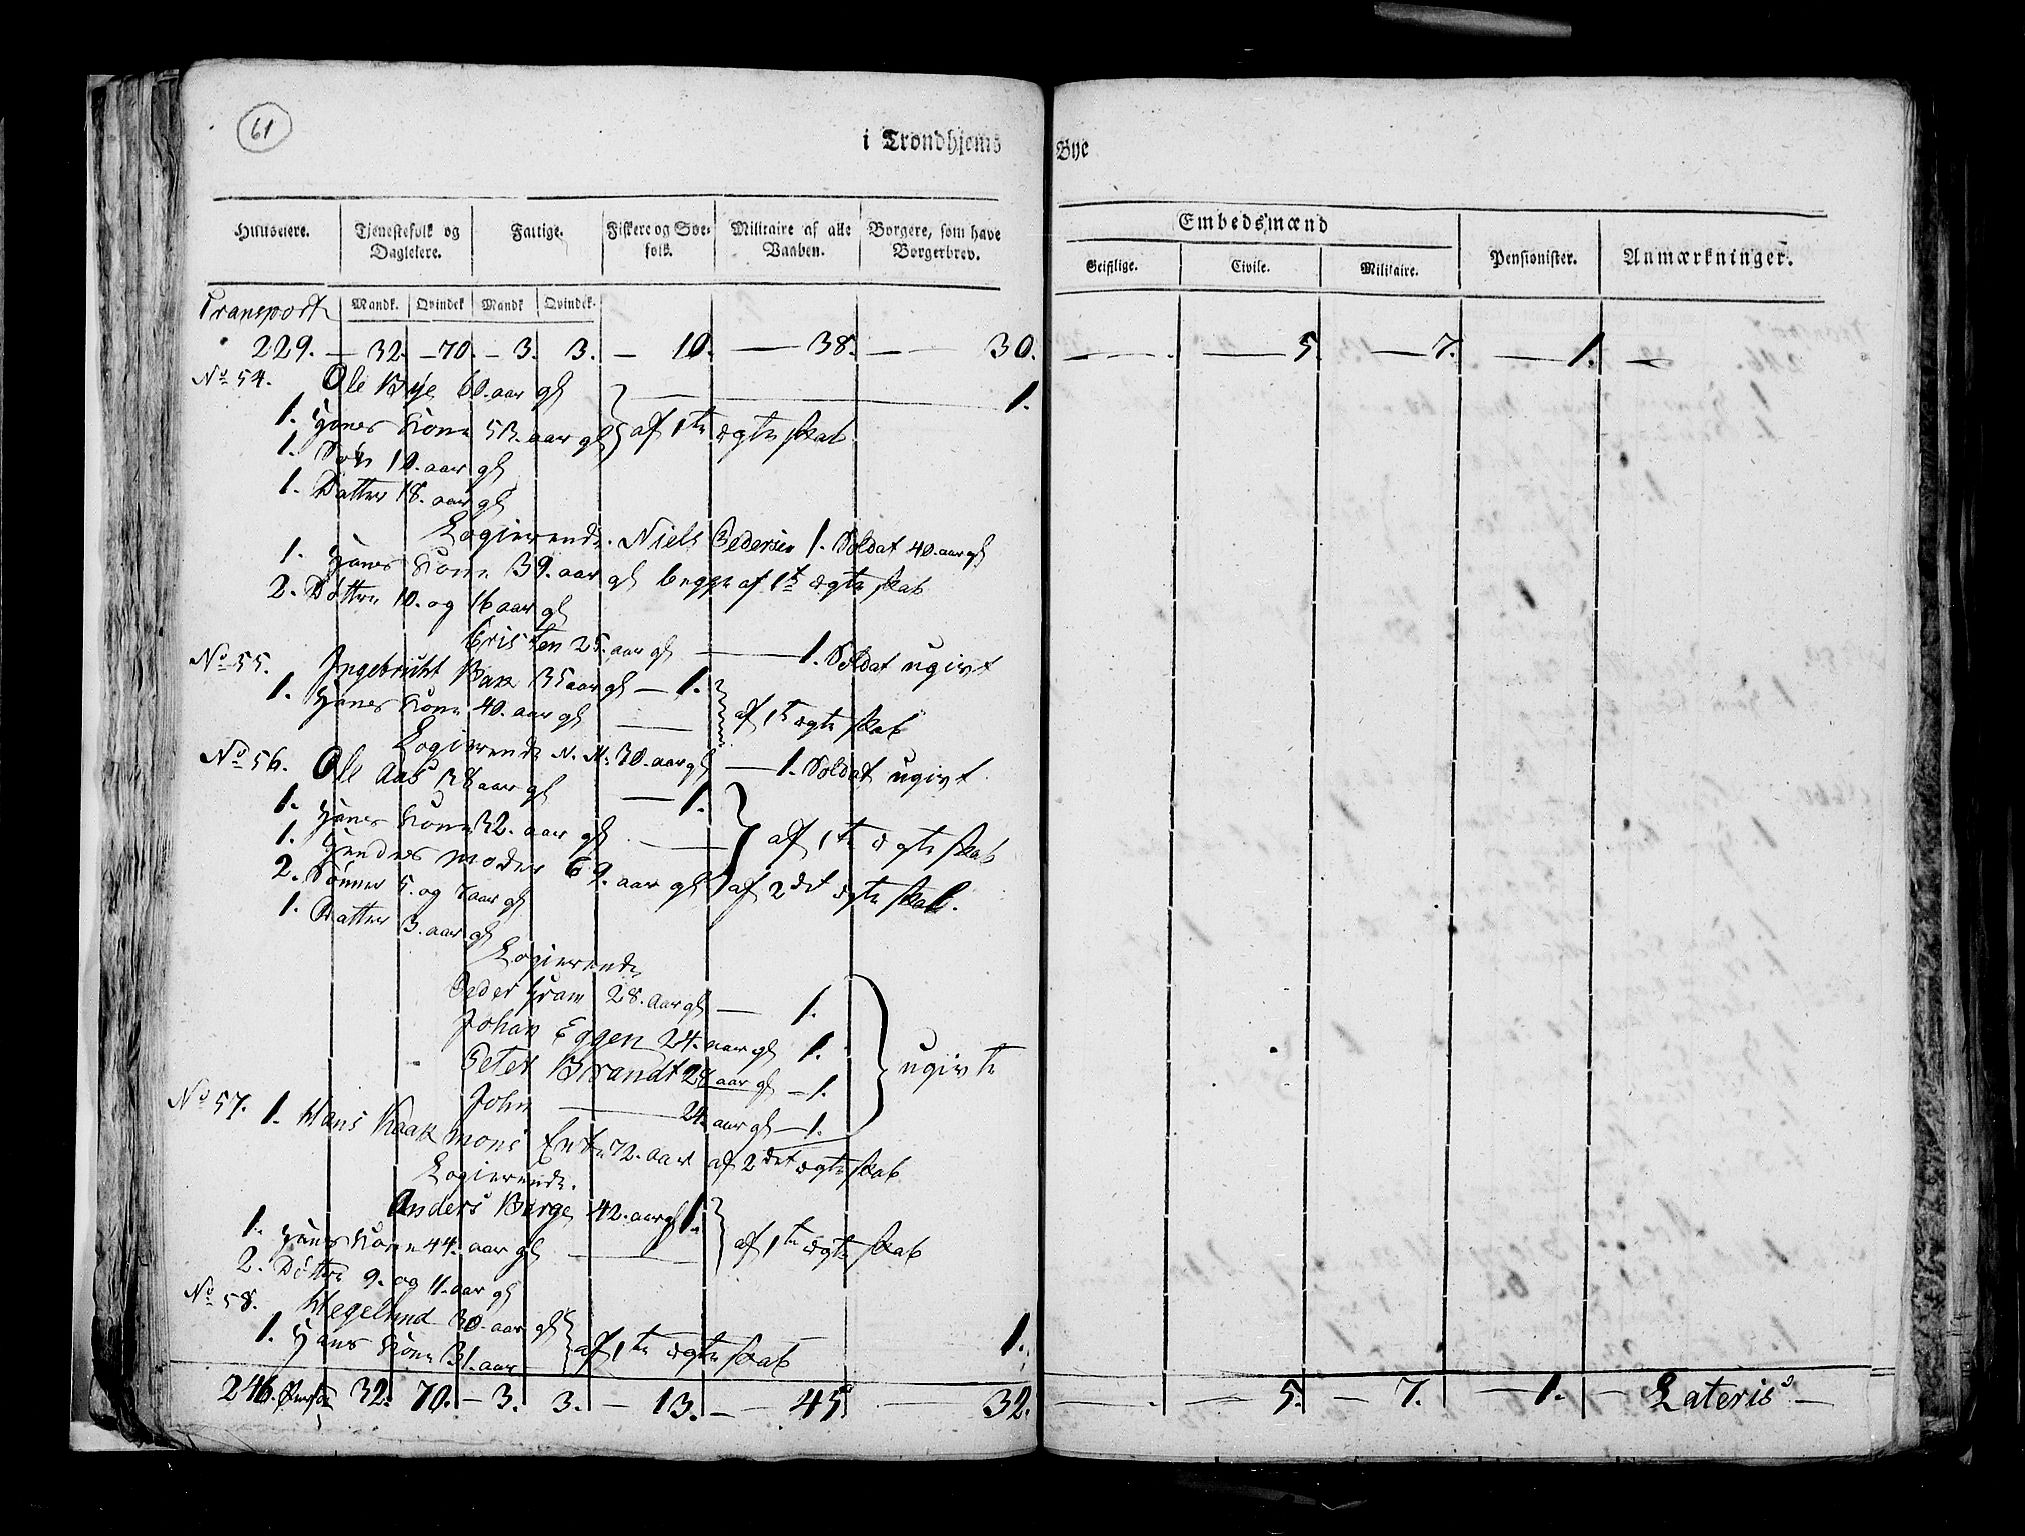 61
i Trondhjems Bye
Huuseiere. Tjenestefolk og Dagleiere. Fattige. Fiskere og Søefolk. Militaire af alle Vaaben. Borgere, som have Borgerbrev. Embedsmænd Pensionister. Anmærkninger.
Geistlige. Civile. Militaire.
Mandk. Qvindek Mandk Qvindek.
Transport
229. — 32. — 70. — 3. 3. — 10. — 38. — 30. — 5. — 7. — 1. —
No 54. Ole Bye 60. aar gl 1.
1. Hanes Kone 53. aar gl } af 1te ægteskab
1. Søn 10. aar gl
1. Datter 18. aar gl
Logierende. Niels Pedersen 1. Soldat 40. aar gl
1. Hanes Kone 39. aar gl begge af 1te ægteskab
2. Døttre 10. og 16 aar gl
Cristen 25. aar gl — 1. Soldat ugivt
No 55. Ingebricht Bak 35 aar gl — 1.
1. Hanes Kone 40. aar gl — af 1te ægteskab
Logierende N. N. 30. aar gl — 1. Soldat ugivt
No 56. Ole Aas 38 aar gl — 1.
1. Hanes Kone 32. aar gl — } af 1te ægteskab
1. Hendes moder 69. aar gl af 2det ægteskab.
2. Sønner 5. og 8 aar gl
1. Datter 3. aar gl
Logierende
Peder Gram 28. aar gl — 1.
Johan Eggen 24. aar gl 1.
Peter Brandt 28 aar gl — 1. } ugivte
John — 24. aar gl — 1.
No 57. 1. Hans Kaakmons Enke 72. aar af 2det ægteskab
Logierende.
Anders Berge 42. aar gl 1.
1. Hanes Kone 44. aar gl — } af 1te ægteskab
2. Døttre 9. og 11. aar gl
No 58. Hegelund 30. aar gl
1. Hanes Kone 31. aar } af 1te ægteskab 1.
246. 32. 70. — 3. 3. — 13. — 45 — 32. — 5. — 7. — 1. — Lateris —